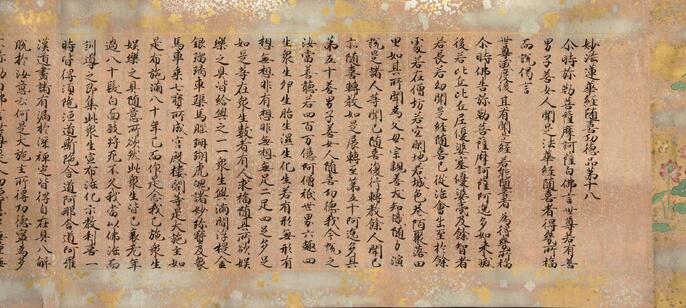 妙法蓮華經隨喜功德品第十八
尒時弥勒菩薩摩訶薩白佛言世尊若有善
男子善女人聞是法華經隨喜者得幾所福
而說偈言
世尊滅度後 其有聞是經 若能隨喜者 為得幾所福
尒時佛告弥勒菩薩摩訶薩阿逸多如來滅
後若比丘比丘尼優婆塞優婆夷及餘智者
若長若幼聞是經隨喜已從法會出至於餘
處若在僧坊若空閑地若城邑巷陌聚落田
里如其所聞為父母宗親善友知識隨力演
說是諸人等聞已隨喜復行轉教餘人聞已
亦隨喜轉教如是展轉至第五十阿逸多其
第五十善男子善女人隨喜功德我今說之
汝當善聽若四百万億阿僧祇世界六趣四
生衆生卵生胎生濕生化生若有形無形有
想無想非有想非無想無足二足四足多足
如是等在衆生數者有人求福隨其所欲娛
樂之具皆給與之一一衆生與滿閻浮提金
銀瑠璃車磲馬腦珊瑚虎魄諸妙珎寶及象
馬車乘七寶所成宮殿樓閣等是大施主如
是布施滿八十年已而作是念我已施衆生
娛樂之具隨意所欲然此衆生皆已衰老年
過八十髮白面皺將死不久我當以佛法而
訓導之即集此衆生宣布法化示教利喜一
時皆得須陁洹道斯陁含道阿那含道阿羅
漢道盡諸有漏於深禪定皆得自在具八解
脫於汝意云何是大施主所得功德寧為多